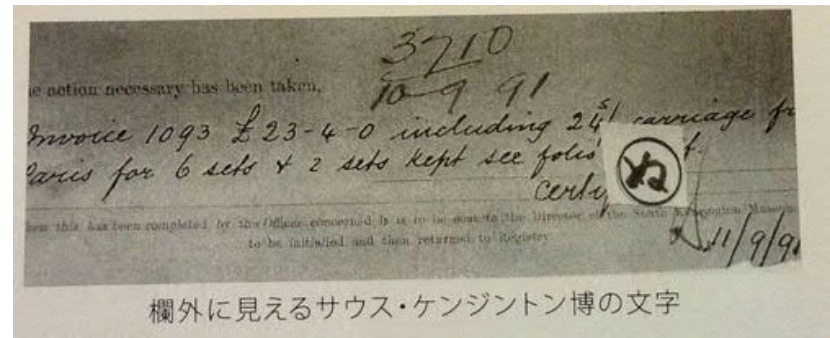 3710
10-9 91
e action necessary has been taken,
Invoice 1093 £23-4-0 including 24s/ carriage fr
Paris for 6 sets & 2 sets kept see folio
ぬ
Certy
hen this has been completed by the Officer concerned it is to be sent to the Director of the South Kensington Museum
to be initialled and then returned to Registry
11/9/91
欄外に見えるサウス・ケンジントン博の文字